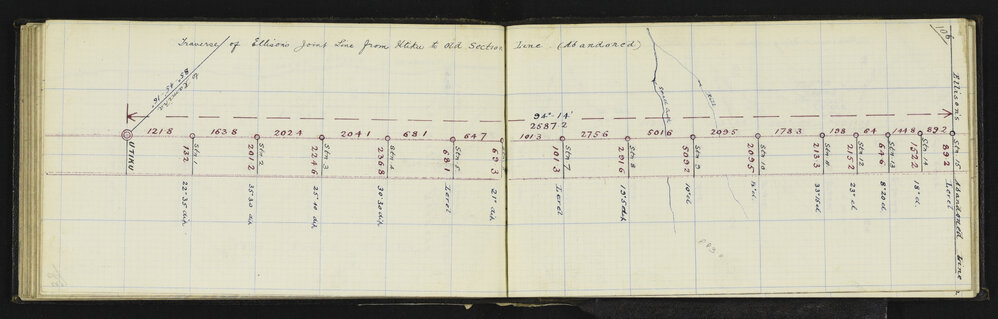 Traverse of Ellisons Joint Line from Utiku to Old Section Line (Abandoned)
106
to Kaweka
85° 45' 16"
94° 14'
2587.2
121.8 163.8 202.4 204.1 68.1 64.7 101.3 275.6 501.6 209.5 178.3 198 64 144.8 89.2
UTIKU
132 Stn 1 22° 35 dip
201.2 Stn 2 35° 30 dip
224.6 Stn 3 25° 40 dip
236.8 Stn 4 30° 30 dip
68.1 Stn 5 Level
69.3 21° dip
101.3 Stn 7 Level
291.6 Stn 8 19° 5 dip
509.2 Stn 9 10° el
209.5 Stn 10
213.3 Stn 11 33° 15 el
215.2 Stn 12 23° el
64.6 Stn 13 8° 20 el
152.2 Stn 14 18° el
89.2 Stn 15 Level
Ellison's
Abandoned Line